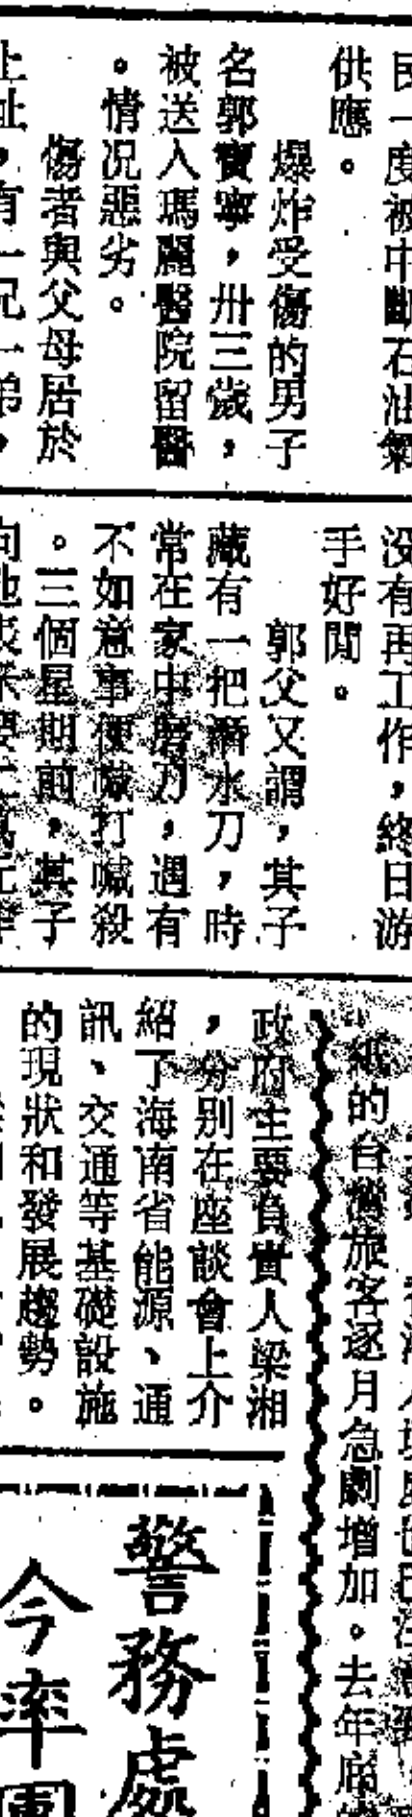 民一度被中斷石油氣
供應。
爆炸受傷的男子
名郭寶寧，卅三歲，
被送入瑪麗醫院留醫
。情况惡劣。
傷者與父母居於
上址，有一兄一弟，
没有再工作，終日游
手好閒。
郭父又謂，其子
藏有一把潛水刀，時
常在家中磨刀，遇有
不如意事便喊打喊殺
。三個星期前，其子
向他表示要
紙的台灣旅客逐月急劇增加。去年底
政府主要負責人梁湘
，分别在座談會上介
紹了海南省能源、通
訊、交通等基礎設施
的現狀和發展趨勢。
警務處
今率團